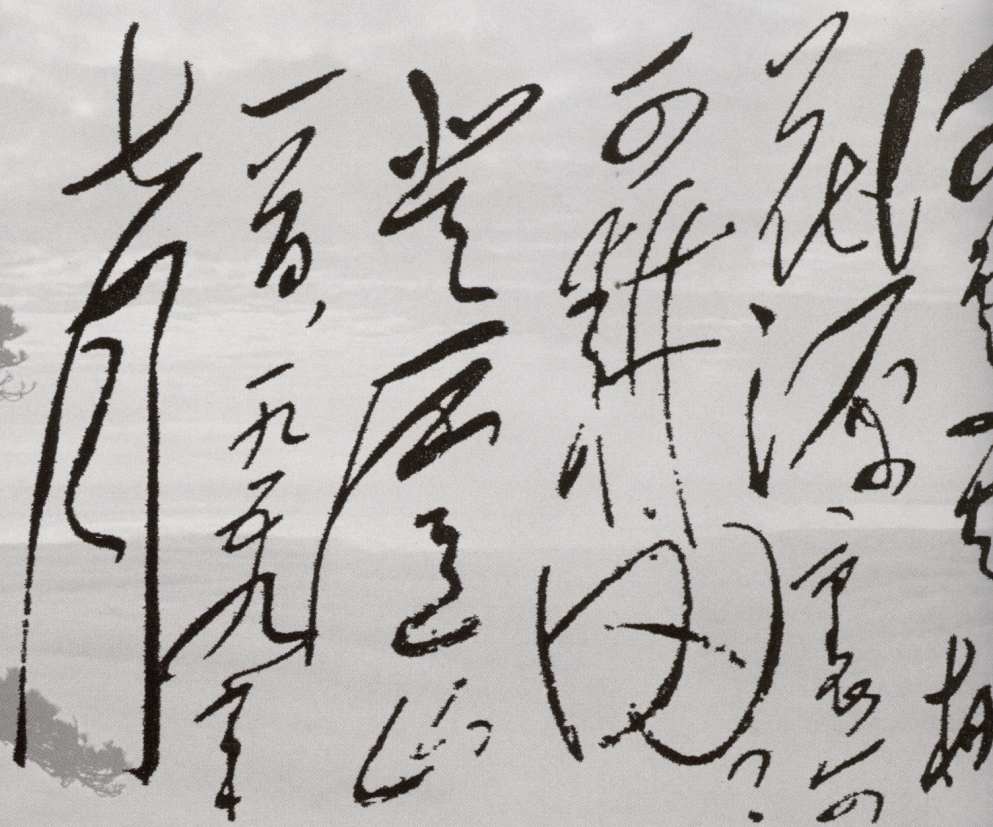 何處去桃
花源裏可
可耕田?
登廬山
一首,一九五九年
七月